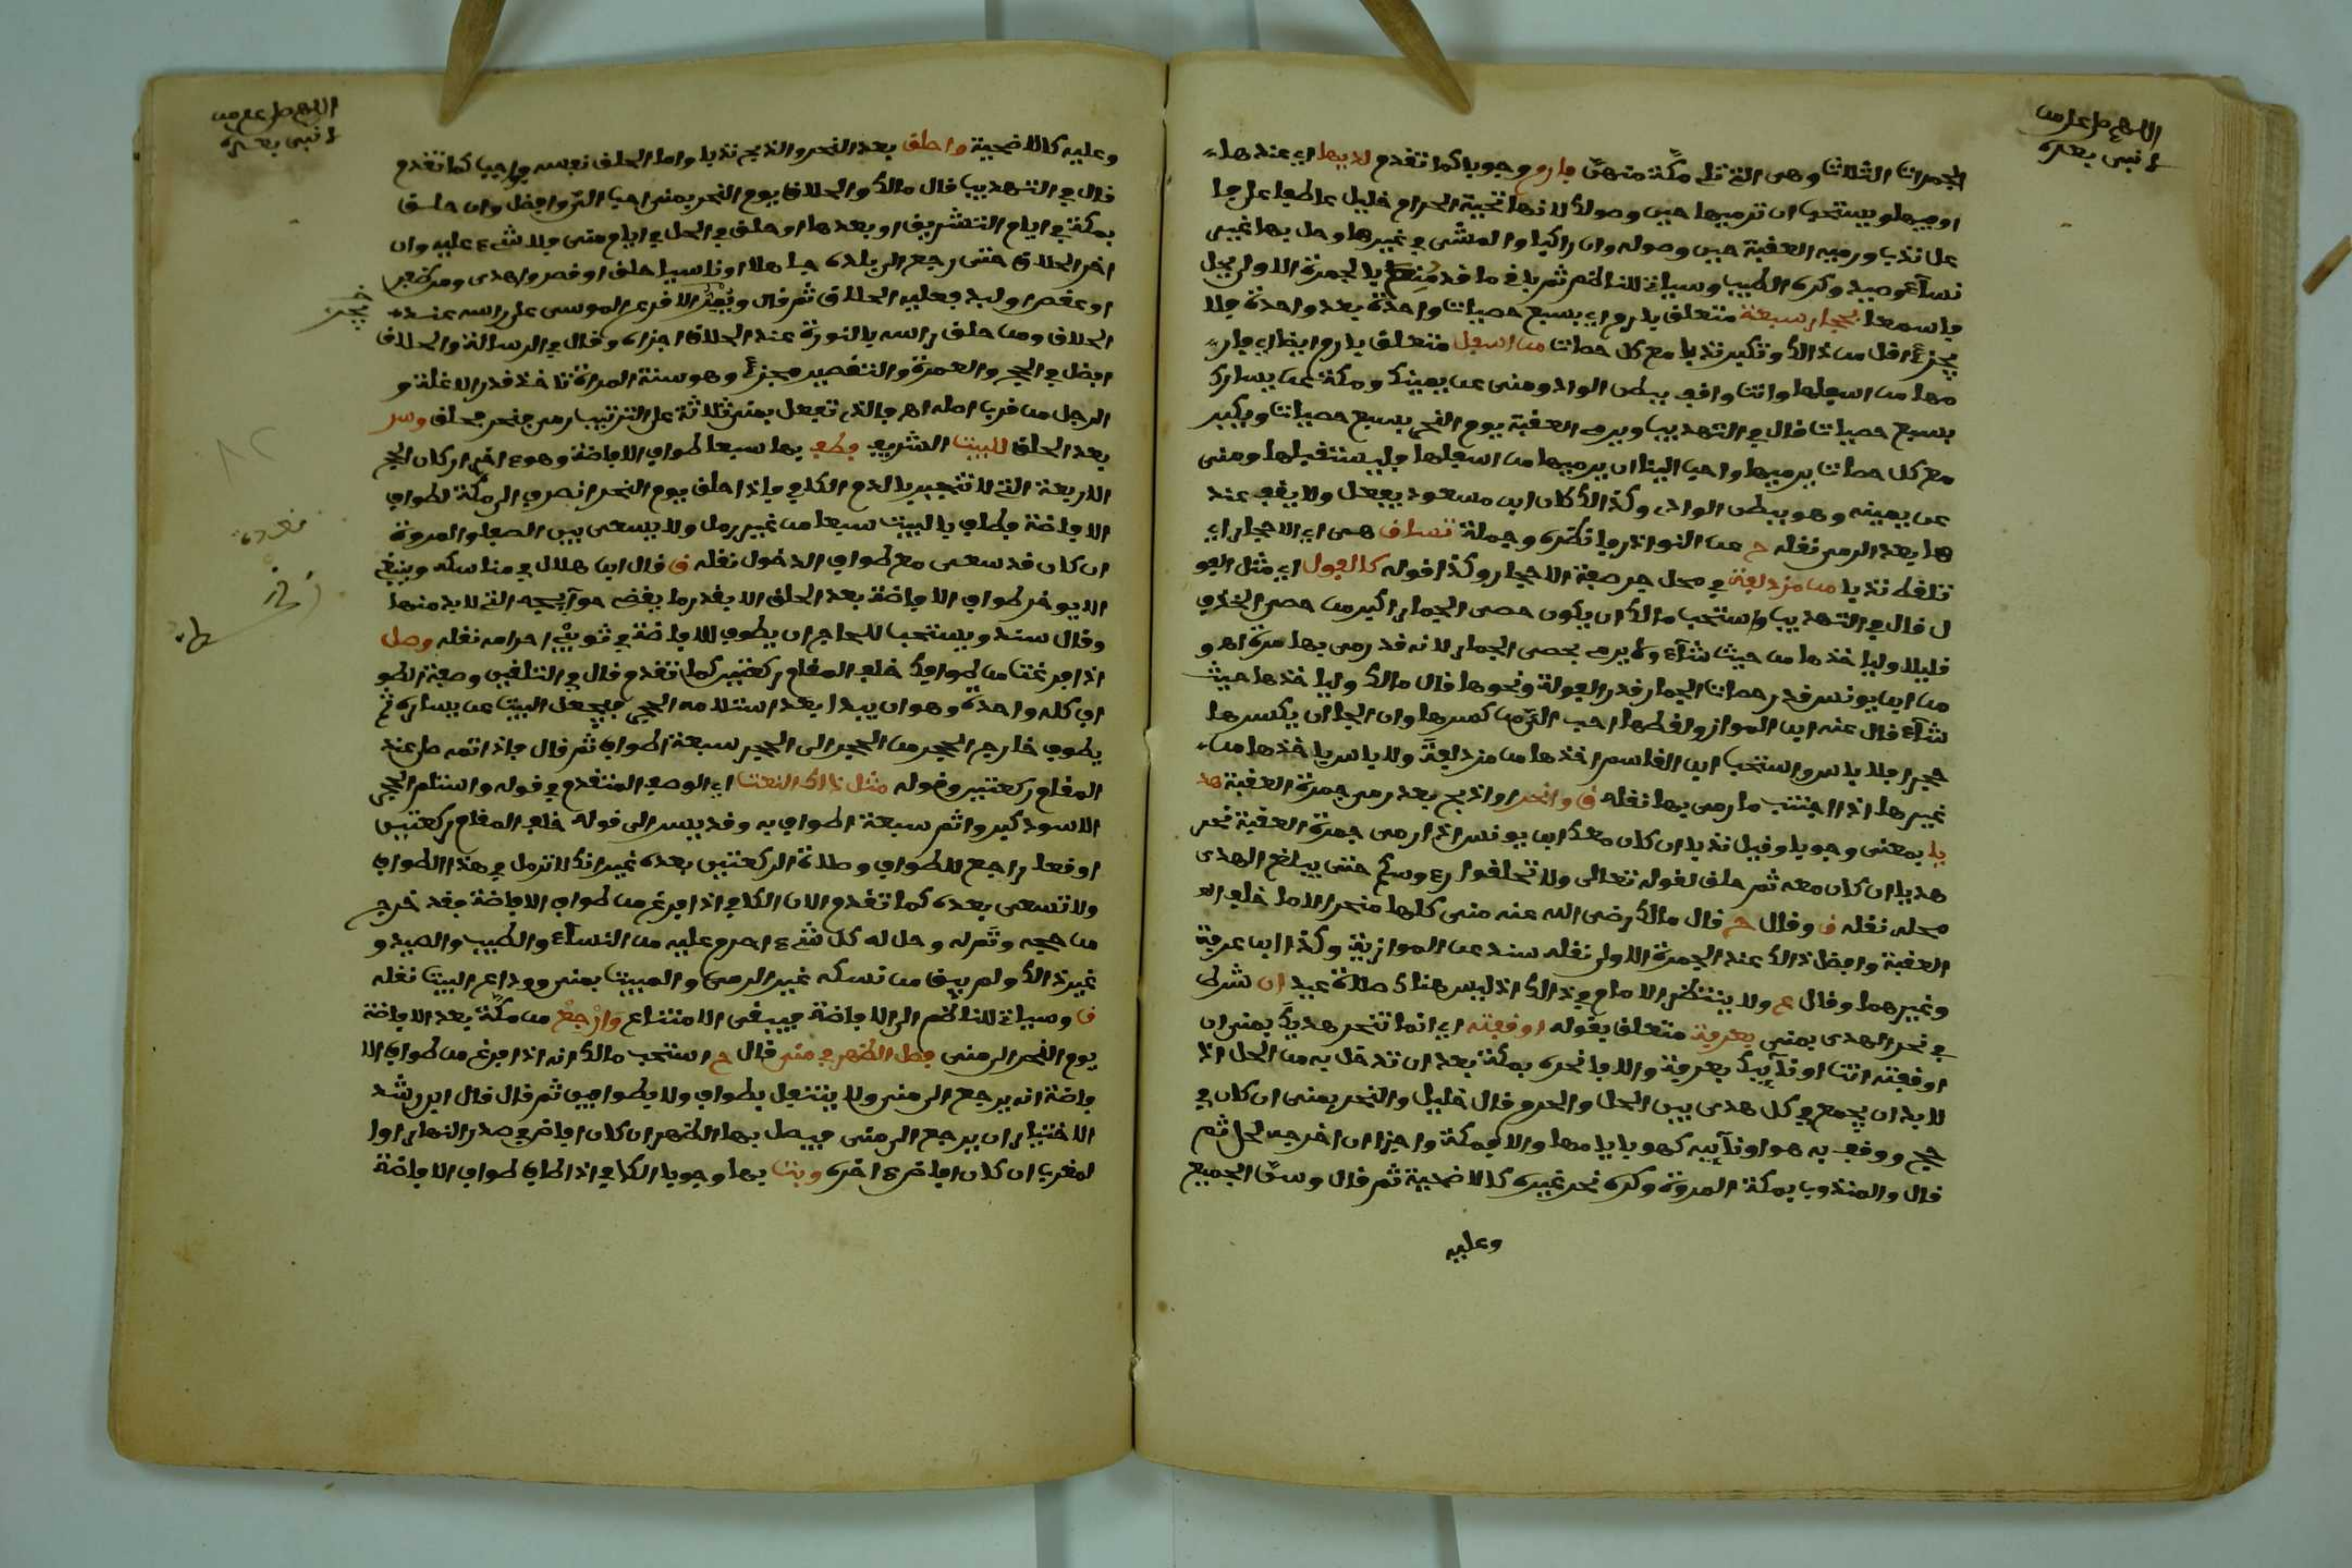 اللهم صل على من
لا نبي بعده
الجمرات الثلاث وهي التي تلي مكة منهن فارم وجوبا كما تقدم لديها اي عندها
او فيها ويستحب ان ترميها حين وصولك لانها تحية الحرام خليل عاطفا على ما
على ندب ورميه العقبة حين وصوله وان راكبا والمشي في غيرها وحل بها غير
نساء وصيد وكره الطيب وسياتي للناظم ثم باقي ما قد منع بالجمرة الاولى يحل
فاسمعا بحجار سبعة متعلق بارم اي بسبع حصيات واحدة بعد واحدة فلا
يجزئ اقل من ذالك وتكبر ندبا مع كل حصات من اسفل متعلق بارم ايضا اي فار
مها من اسفلها وانت واقف ببطن الواد ومنى عن يمينك ومكة عن يسارك
بسبع حصيات قال في التهذيب ويرمي العقبة يوم النحر بسبع حصيات ويكبر
مع كل حصات يرميها واحب الينا ان يرميها من اسفلها فليستقبلها ومنى
عن يمينه وهو ببطن الوادي وكذالك كان ابن مسعود يفعل ولا يقف عند
ها بعد الرمي نقله ح عن النوادر فانظره وجملة تساق هي اي الاحجار اي
تلقط ندبا من مزدلفة في محل جر صفة الاحجار وكذا قوله كالفول اي مثل الفو
ل قال في التهذيب واستحب مالك ان يكون حصى الجمار اكبر من حصى الخذف
قليلا ولياخذها من حيث شاء ولا يرمي بحصى الجمار لانه قد رمي بها مرة اهـ و
من ابن يونس قدر حصات الجمار قدر الفولة ونحوها قال مالك ولياخذها حيث
شاء قال عنه ابن المواز ولقطها احب الي من كسرها وان الجا ان يكسرها
حجرا فلا باس واستحب ابن القاسم اخذها من مزدلفة ولا باس باخذها من
غيرها اذا اجتنب ما رمي بها نقله ق وانحر او اذبح بعد رمي جمرة العقبة هد
يا بمعنى وجوبا وقيل ندبا ان كان معك ابن يونس اذا رمى جمرة العقبة نحر
هديا ان كان معه ثم حلق لقوله تعالى ولا تحلقوا رءوسكم حتى يبلغ الهدي
محله نقله ق وقال ح قال مالك رضي الله عنه منى كلها منحر الا ما خلف الـ
العقبة وافضل ذالك عند الجمرة الاولى نقله سند عن الموازية وكذا ابن عرفة
وغيرهما وقال ع ولا ينتظر الامام في ذالك اذ ليس هناك صلاة عيد ان شرط
في نحر الهدي بمنى بعرفة متعلق بقوله اوقفته اي انما تنحر هديك بمنى ان
اوقفته انت او نائبك بعرفة والا فانحره بمكة بعد ان تدخل به من الحل اذ
لا بد ان يجمع في كل هدي بين الحل والحرم قال خليل والنحر بمنى ان كان في
حج ووقف به هو او نائبه كهو بايامها والا فمكة واجزا ان اخرج لحل ثم
قال والمندوب بمكة المروة وكره نحر غيره كالاضحية ثم قال وسن الجميع
وعليه
اللهم صل على من
لا نبي بعده
وعليه كالاضحية واحلق بعد النحر والذبح ندبا واما الحلق نفسه فواجب كما تقدم
قال في التهذيب قال مالك والحلاق يوم النحر بمنى احب الي وافضل وان حلق
بمكة في ايام التشريق او بعدها او حلق في الحل في ايام منى فلا شيء عليه وان
اخر الحلاق حتى رجع الى بلده جاهلا او ناسيا حلق او قصر واهدى ومن ضفر
او عقص او لبد فعليه الحلاق ثم قال ويمر الاقرع الموسى على راسه عند
الحلاق ومن حلق راسه بالنورة عند الحلاق اجزاه وقال في الرسالة والحلاق
افضل في الحج والعمرة والتقصير مجزئ وهو سنة المراة تاخذ قدر الانملة و
الرجل من قرب اصله اهـ فالذي تفعل بمنى ثلاثة على الترتيب رمي فنحر فحلق وسر
بعد الحلق للبيت الشريف فطف بها سبعا طواف الافاضة وهو ءاخر اركان الحج
الاربعة التي لا تنجبر بالدم الكافي واذا حلق يوم النحر انصرف الى مكة لطواف
الافاضة فطاف بالبيت سبعا من غير رمل ولا يسعى بين الصفا والمروة
ان كان قد سعى مع طواف الدخول نقله ق قال ابن هلال في مناسكه وينبغي
الا يوخر طواف الافاضة بعد الحلق الا بقدر ما يقضي حوائجه التي لا بد منها
وقال سند ويستحب للحاج ان يطوف للافاضة في ثوبي احرامه نقله وصل
اذا فرغت من طوافك خلف المقام ركعتين كما تقدم قال في التلقين وصفة الطو
اف كله واحدة وهو ان يبدا بعد استلامه الحجر فيجعل البيت عن يساره ثم
يطوف خارج الحجر من الحجر الى الحجر سبعة اطواف ثم قال فاذا اتمه صل عند
المقام ركعتين وقوله مثل ذاك النعت اي الوصف المتقدم في قوله واستلم الحجر
الاسود كبر واتم سبعة اطواف به وقد يسر الى قوله خلف المقام ركعتين
اوقعا راجع للطواف وصلاة الركعتين بعده غير انك لا ترمل في هذا الطواف
ولا تسعى بعده كما تقدم الان الكافي اذا فرغ من طواف الافاضة فقد خرج
من حجه وتم له وحل له كل شيء احرم عليه من النساء والطيب والصيد و
غير ذالك ولم يبق من نسكه غير الرمي والمبيت بمنى ووداع البيت نقله
ق وسياتي للناظم الى الافاضة فيبقى الامتناع وارجع من مكة بعد الافاضة
يوم النحر الى منى فصل الظهر في منى قال ح استحب مالك انه اذا فرغ من طواف الا
فاضة انه يرجع الى منى ولا يتنفل بطواف ولا بطوافين ثم قال قال ابن رشد
الاختيار ان يرجع الى منى فيصلي بها الظهر ان كان افاض في صدر النهار او ا
لمغرب ان كان افاض في ءاخره وبت بها وجوبا الكافي اذا طاف طواف الافاضة